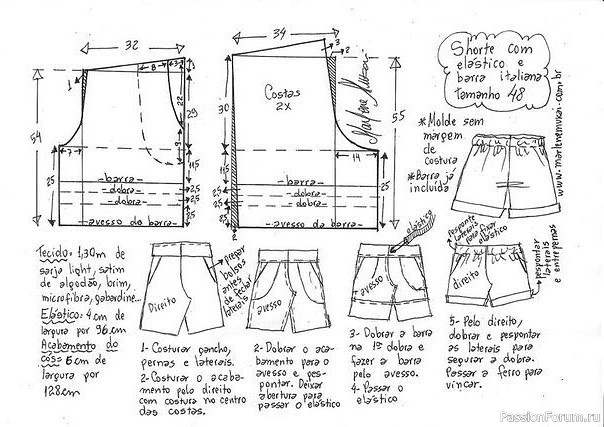 32
34
Shorte com
elástico e
barra italiana
tamanho 48
www.marlenemukai.com.br
Marlene Mukai
*Molde sem
margem
de
costura
*Barra já
incluída
1
8
3
22
29
9
54
7
25
11,5
2,5
2,5
25
-barra-
-dobra-
-dobra-
-avesso da barra-
3
2
Costas
2X
30
55
14
25
11,5
2,5
2,5
25
2
-barra-
-dobra-
-dobra-
-avesso da barra-
Tecido: 1,30m de
sarja light, cetim
de algodão, brim,
microfibra, gabardine...
Elástico: 4cm de
largura por 96cm
Acabamento do
cós: 6cm de
largura por
128cm
Direito
pregar
bolsos
antes
de fechar
laterais
avesso
elástico
avesso
pesponte
laterais
para fixar
elástico
direito
pespontar
laterais
e entrepernas
1- Costurar gancho,
pernas e laterais.
2- Costurar o acaba-
mento pelo direito
com costura no centro
das costas.
2- Dobrar o aca-
bamento para o
avesso e pes-
pontar. Deixar
abertura para
passar o elástico
3- Dobrar a barra
na 1ª dobra e
fazer a barra
pelo avesso.
4- Passar o
elástico
5- Pelo direito,
dobrar e pespontar
as laterais para
segurar a dobra.
Passar a ferro para
vincar.
PassionForum.ru